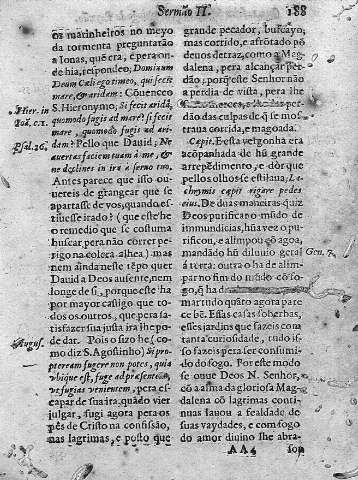 Sermão II. 188
os marinheiros no meyo
da tormenta preguntarão
a Ionas, que era, & pera on-
de hia, respondeo; Dominum
Deum Cæli ego timeo, qui fecit
mare, & aridam: Cõuenceo
S. Hieronymo; Si fecit aridã,
quomodo fugis ad mare? si fecit
mare, quomodo fugis ad ari-
dam? Pello que Dauid; Ne
auertas faciem tuam à me, & 
ne declines in ira à seruo tuo.
Antes parece que isso ou-
uereis de grangear que se
apartasse de vos, quando es-
tiuesse irado? (que este he
o remedio que se costuma
buscar pera não correr pe-
rigo na colera alhea) mas
nem ainda neste tẽpo quer
Dauid a Deos ausente, nem
longe de si, porque este ha
por mayor castigo que to-
dos os outros, que pera sa-
tisfazer sua justa ira lhe po-
de dar. Pois o sizo he (co-
mo diz S. Agostinho) Si pro-
pterea m fugere non potes, quia
vbique est, fuge ad præsentem,
pera es-
capar de sua ira, quãdo vier
julgar, fugi agora pera os
pès de Christo na confissão,
nas lagrimas, & posto que
Hier. in
Psal. 26.
August.
grande pecador, buscayo,
mas corrido, & afrõtado põ
de uos detraz, como a Mag-
dalena, pera alcançar per-
dão; porque este Senhor não
a perdia de vista, pera lhe
dão das culpas de q̃ se mos-
traua corrida, & magoada.
Capit. E esta vergonha era
acõpanhada de hũ grande
arrepẽdimento, & dòr que
pellos olhos se estilaua, La-
chrymis cœpit rigare pedes
eius. De duas maneiras quiz
Deos purificar o mũdo de
immundicias, hũa vez o pu-
rificou, & alimpou cõ agoa,
mandãdo hũ diluuio geral
á terra: outra o ha de alim-
par no fim do mũdo cõ fo-
go, q̃ ha
mar tudo quãto agora pare
ce bẽ. Essas casas soberbas,
esses jardins que fazeis com
tanta curiosidade, tudo is-
so fazeis pera ser consumi-
do do fogo. Por este modo
se ouue Deos N. Senhor,
cõ a alma da gloriosa Mag-
dalena cõ lagrimas conti-
nuas lauou a fealdade de
suas vaydades, & com fogo
do amor diuino lhe abra-
Gen. 7.
AA4 sou